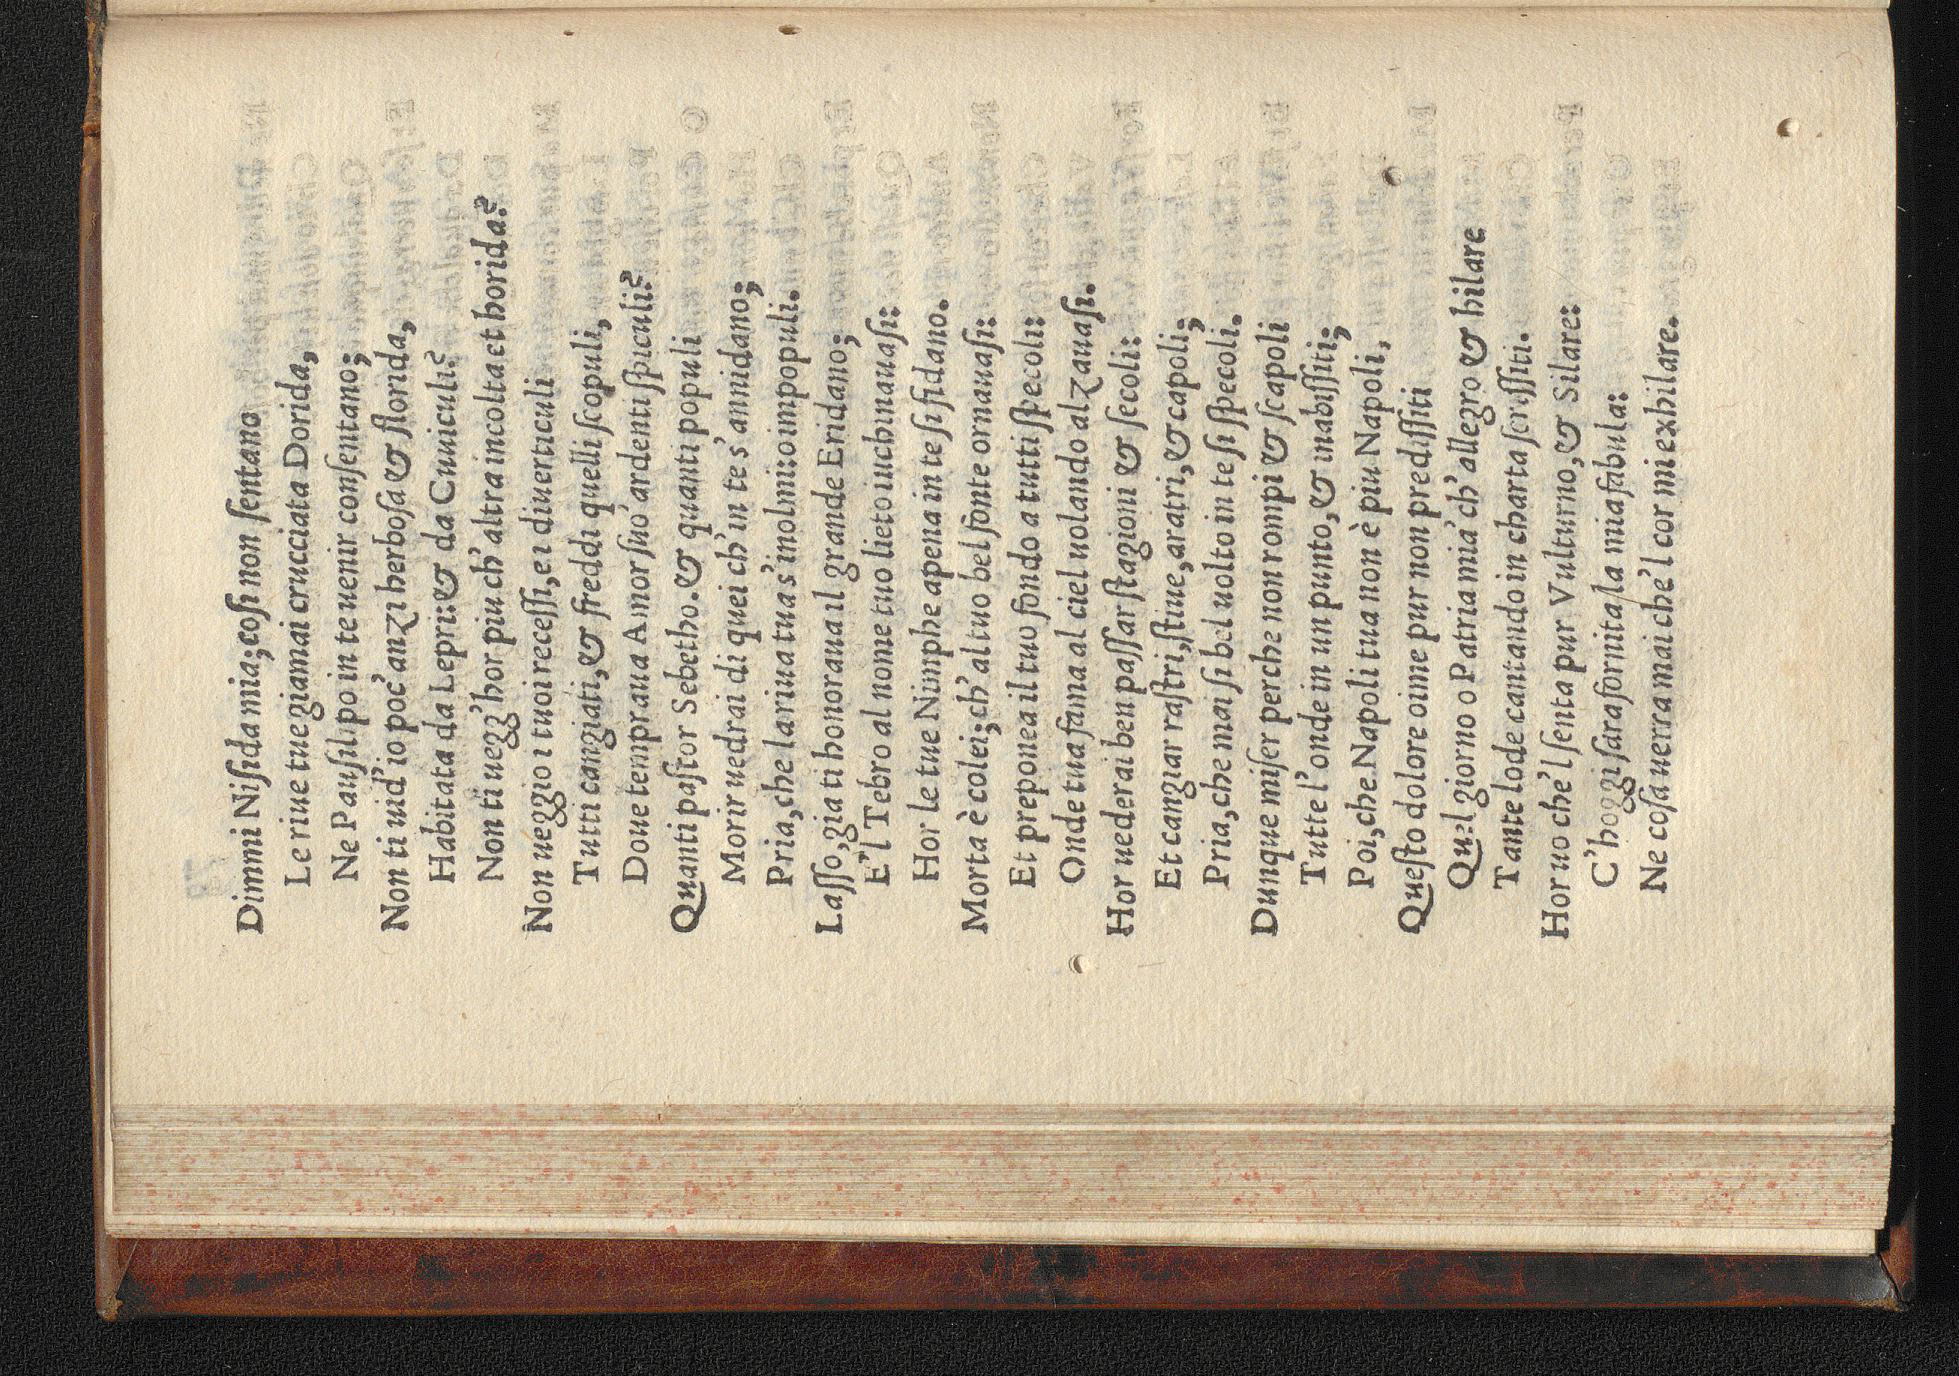 Dimmi Niſida mia; coſi non ſentano
Le riue tue giamai crucciata Dorida,
Ne Pauſilipo in te uenir conſentano;
Non ti uid'io poc'anzi herboſa & florida,
Habitata da Lepri: & da Cuniculi?
Non ti uegg'hor piu ch'altra incolta et horida?
Non ueggio i tuoi receſſi, ei diuerticuli
Tutti cangiati, & freddi quelli ſcopuli,
Doue tempraua Amor ſuo' ardenti ſpiculi?
Quanti paſtor Sebetho. & quanti populi
Morir uedrai di quei ch'in te s'annidano;
Pria, che la riua tua s'inolmi: o impopuli.
Laſſo, gia ti honoraua il grande Eridano;
E'l Tebro al nome tuo lieto iuchinauaſi:
Hor le tue Nimphe apena in te ſi fidano.
Morta è colei; ch'al tuo bel fonte ornauaſi:
Et preponea il tuo fondo a tutti ſpecoli:
Onde tua fama al ciel uolando alzauaſi.
Hor uederai ben paſſar ſtagioni & ſecoli:
Et cangiar raſtri, ſtiue, aratri, & capoli;
Pria, che mai ſi bel uolto in te ſi ſpecoli.
Dunque miſer perche non rompi & ſcapoli
Tutte l'onde in un punto, & inabiſſiti;
Poi, che Napoli tua non è piu Napoli,
Queſto dolore oime pur non prediſſiti
Quel giorno o Patria mia' ch'allegro & hilare
Tante lode cantando in charta ſcriſſiti.
Hor uo che'l ſenta pur Vulturno, & Silare:
C'hoggi ſara fornita la mia fabula:
Ne coſa uerra mai che'l cor mi exhilare.